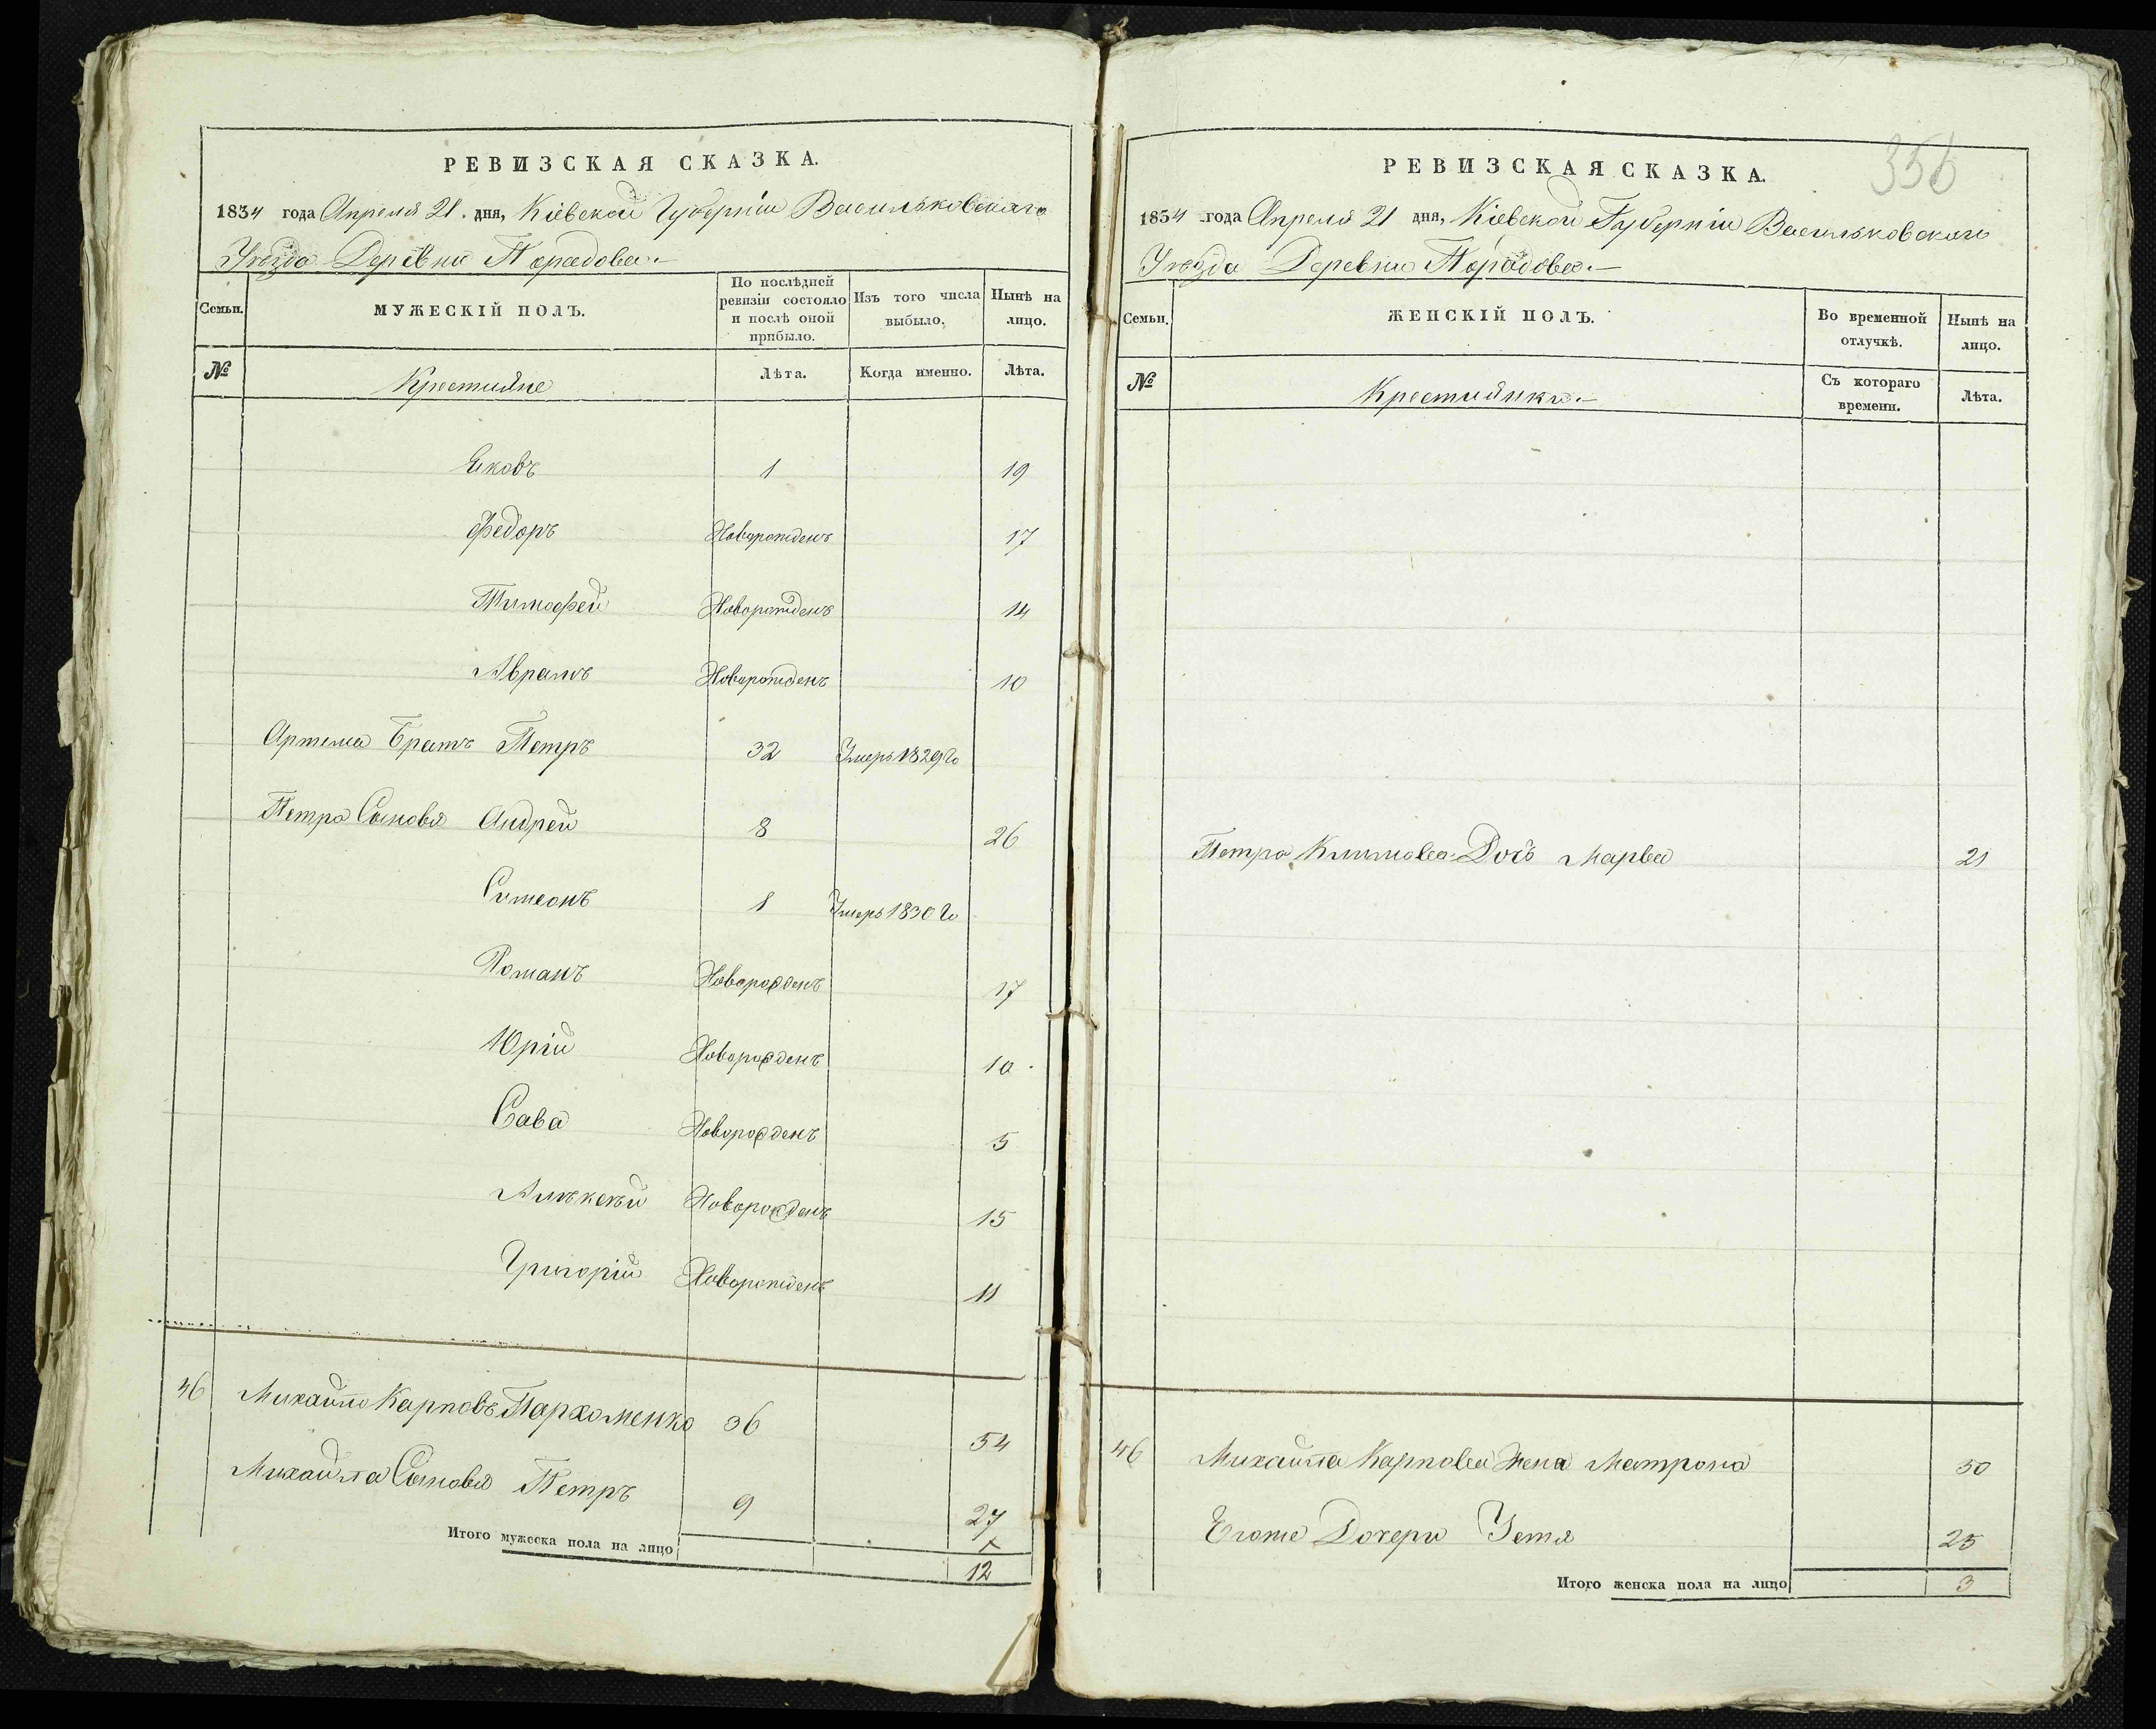 РЕВИЗСКАЯ СКАЗКА.
1834 года Апреля 21. дня, Кіевской Губерніи Васильковскаго
Уѣзда Деревни Порадовки.
Семьи. МУЖЕСКІЙ ПОЛЪ. По послѣдней ревизіи состояло и послѣ оной прибыло. Изъ того числа выбыло. Нынѣ на лицо.
№ Крестьяне Лѣта. Когда именно. Лѣта.
Яковъ 1 19
Федоръ Новорожденъ 17
Тимофей Новорожденъ 14
Аврамъ Новорожденъ 10
Артема Братъ Петръ 32 Умеръ 1829го
Петра Сыновя Андрей 8 26
Симеонъ 1 Умеръ 1830го
Романъ Новорожденъ 17
Юрій Новорожденъ 10
Сава Новорожденъ 5
Новорожденъ 15
Григорій Новорожденъ 11
46 Михайло Карповъ Пархоменко 36 54
Михайла Сыновя Петръ 9 27
Итого мужеска пола на лицо 12
356
РЕВИЗСКАЯ СКАЗКА.
1834 года Апреля 21 дня, Кіевской Губерніи Васильковскаго
Уѣзда Деревни
Семьи. ЖЕНСКІЙ ПОЛЪ. Во временной отлучкѣ. Нынѣ на лицо.
№ Крестьянки. Съ котораго времени. Лѣта.
Петра Климова Дочь 21
46 Михайла Карпова Жена Матрона 50
Егоже Дочери Устя 25
Итого женска пола на лицо 3